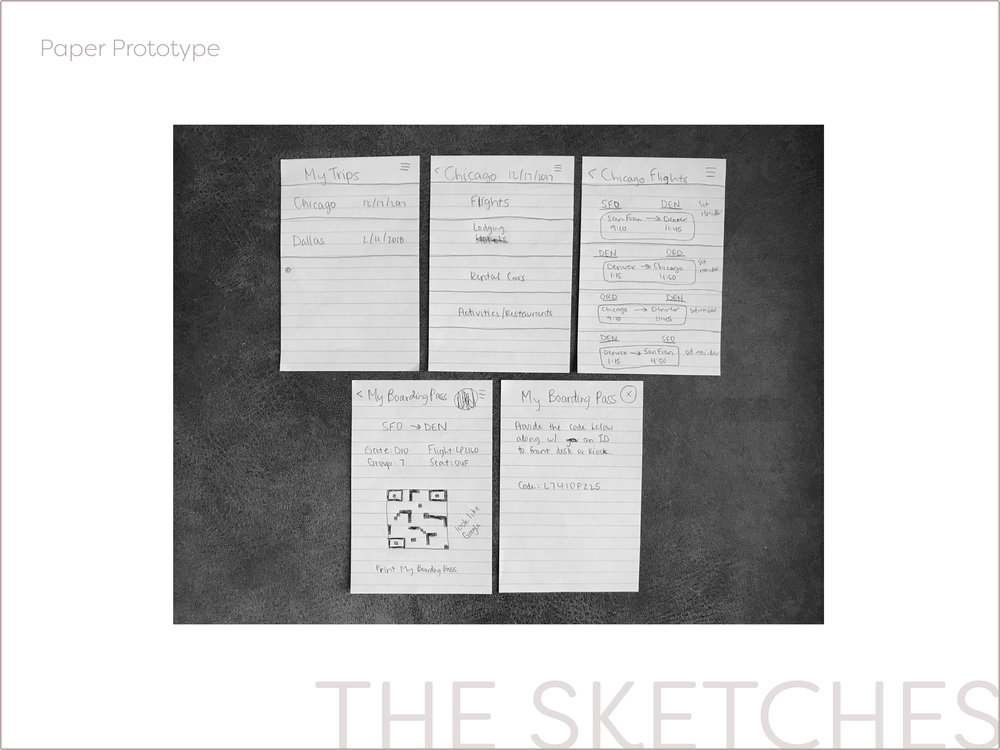 Paper Prototype
My Trips
Chicago 12/17/2017
Dallas 2/11/2018
< Chicago 12/17/2017
Flights
Lodging
Hotels
Rental Cars
Activities/Restaurants
< Chicago Flights
SFO DEN Set
reminder
San Fran → Denver
9:10 11:45
DEN ORD Set
reminder
Denver → Chicago
1:15 4:50
ORD DEN
Chicago → Denver set reminder
9:10 11:45
DEN SFO
Denver → San Fran set reminder
1:15 4:50
< My Boarding Pass
SFO → DEN
Gate: D10 Flight: LP2160
Group: 7 Seat: 04F
look like
Google
Print My Boarding Pass
My Boarding Pass X
Provide the code below
along w/ an ID
to front desk or kiosk.
Code: L7410PZ25
THE SKETCHES